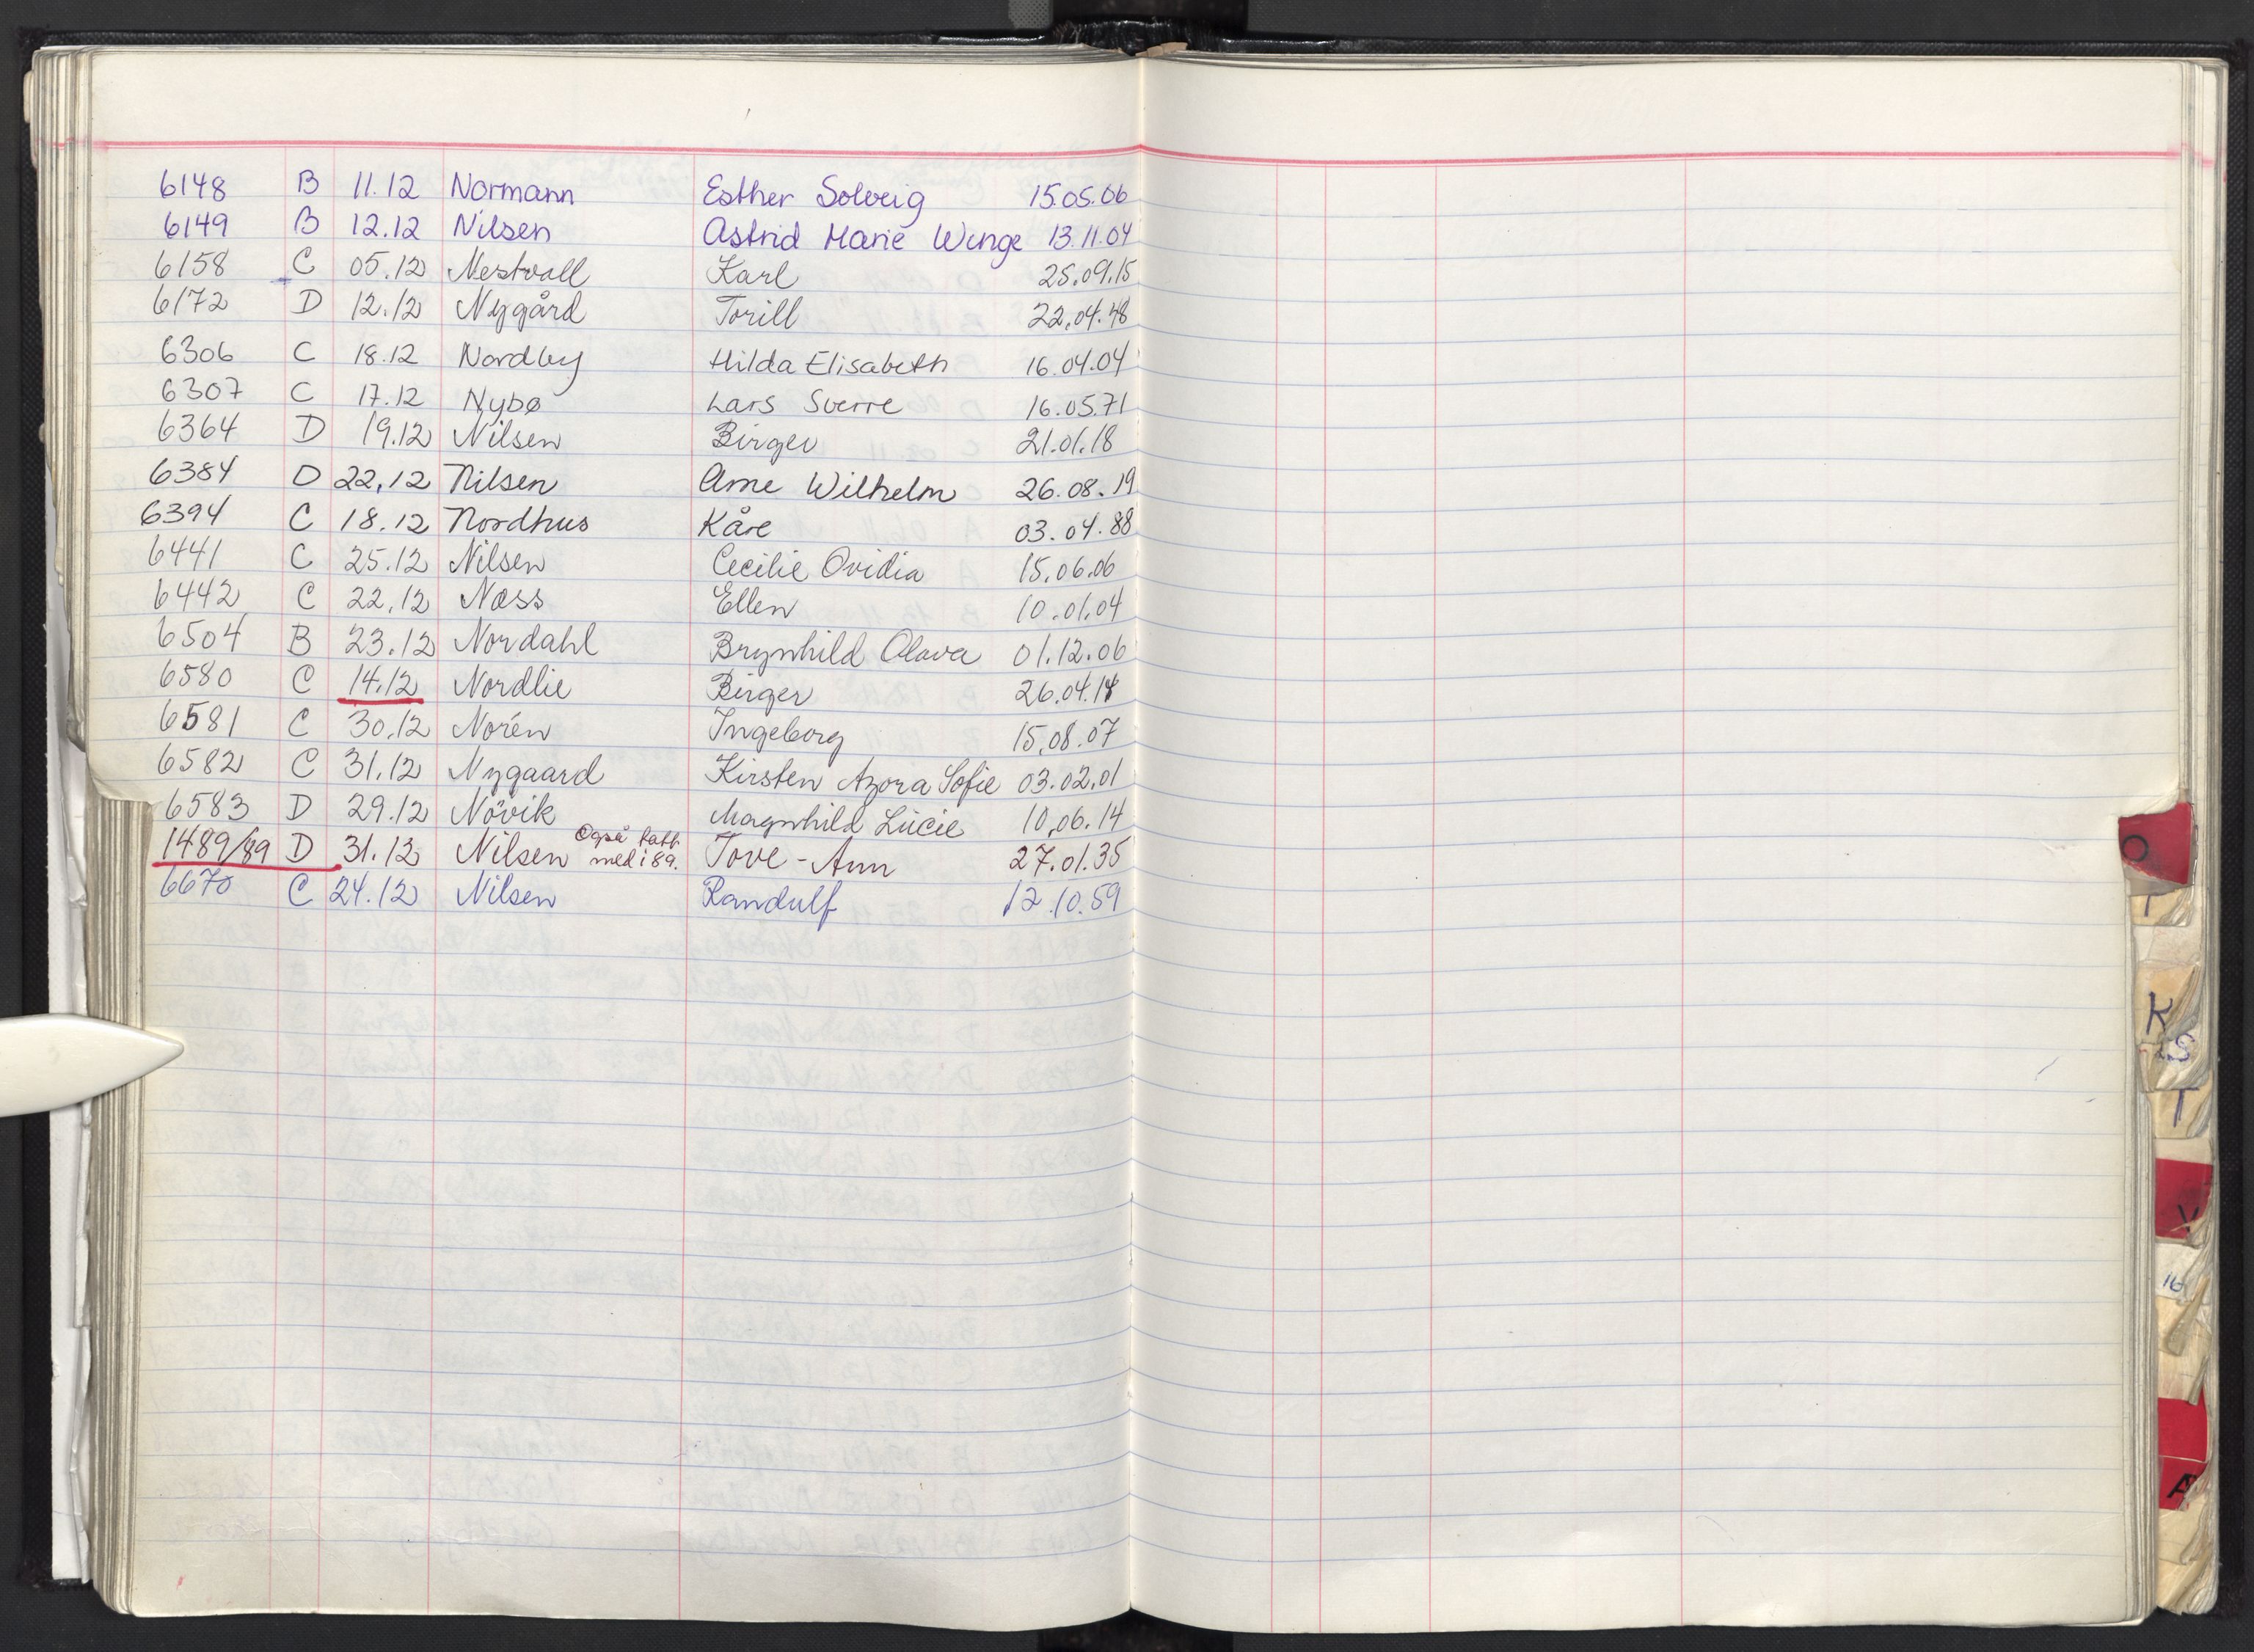 6148 B 11.12 Normann Esther Solveig 15.05.06
6149 B 12.12 Nilsen Astrid Marie Winge 13.11.04
6158 C 05.12 Nestvall Karl 25.09.15
6172 D 12.12 Nygård Torill 22.04.48
6306 C 18.12 Nordby Hilda Elisabeth 16.04.04
6307 C 17.12 Nybø Lars Sverre 16.05.71
6364 D 19.12 Nilsen Birger 21.01.18
6384 D 22.12 Nilsen Arne Wilhelm 26.08.19
6394 C 18.12 Nordhus Kåre 03.04.88
6441 C 25.12 Nilsen Cecilie Ovidia 15.06.06
6442 C 22.12 Næss Ellen 10.01.04
6504 B 23.12 Nordahl Brynhild Olava 01.12.06
6580 C 14.12 Nordlie Birger 26.04.14
6581 C 30.12 Norén Ingeborg 15.08.07
6582 C 31.12 Nygaard Kirsten Azora Sofie 03.02.01
6583 D 29.12 Növik Magnhild Lucie 10.06.14
1489/89 D 31.12 Nilsen Også tatt med i 89. Tove-Ann 27.01.35
6670 C 24.12 Nilsen Randulf 12.10.59
O
K
S
T
V
16